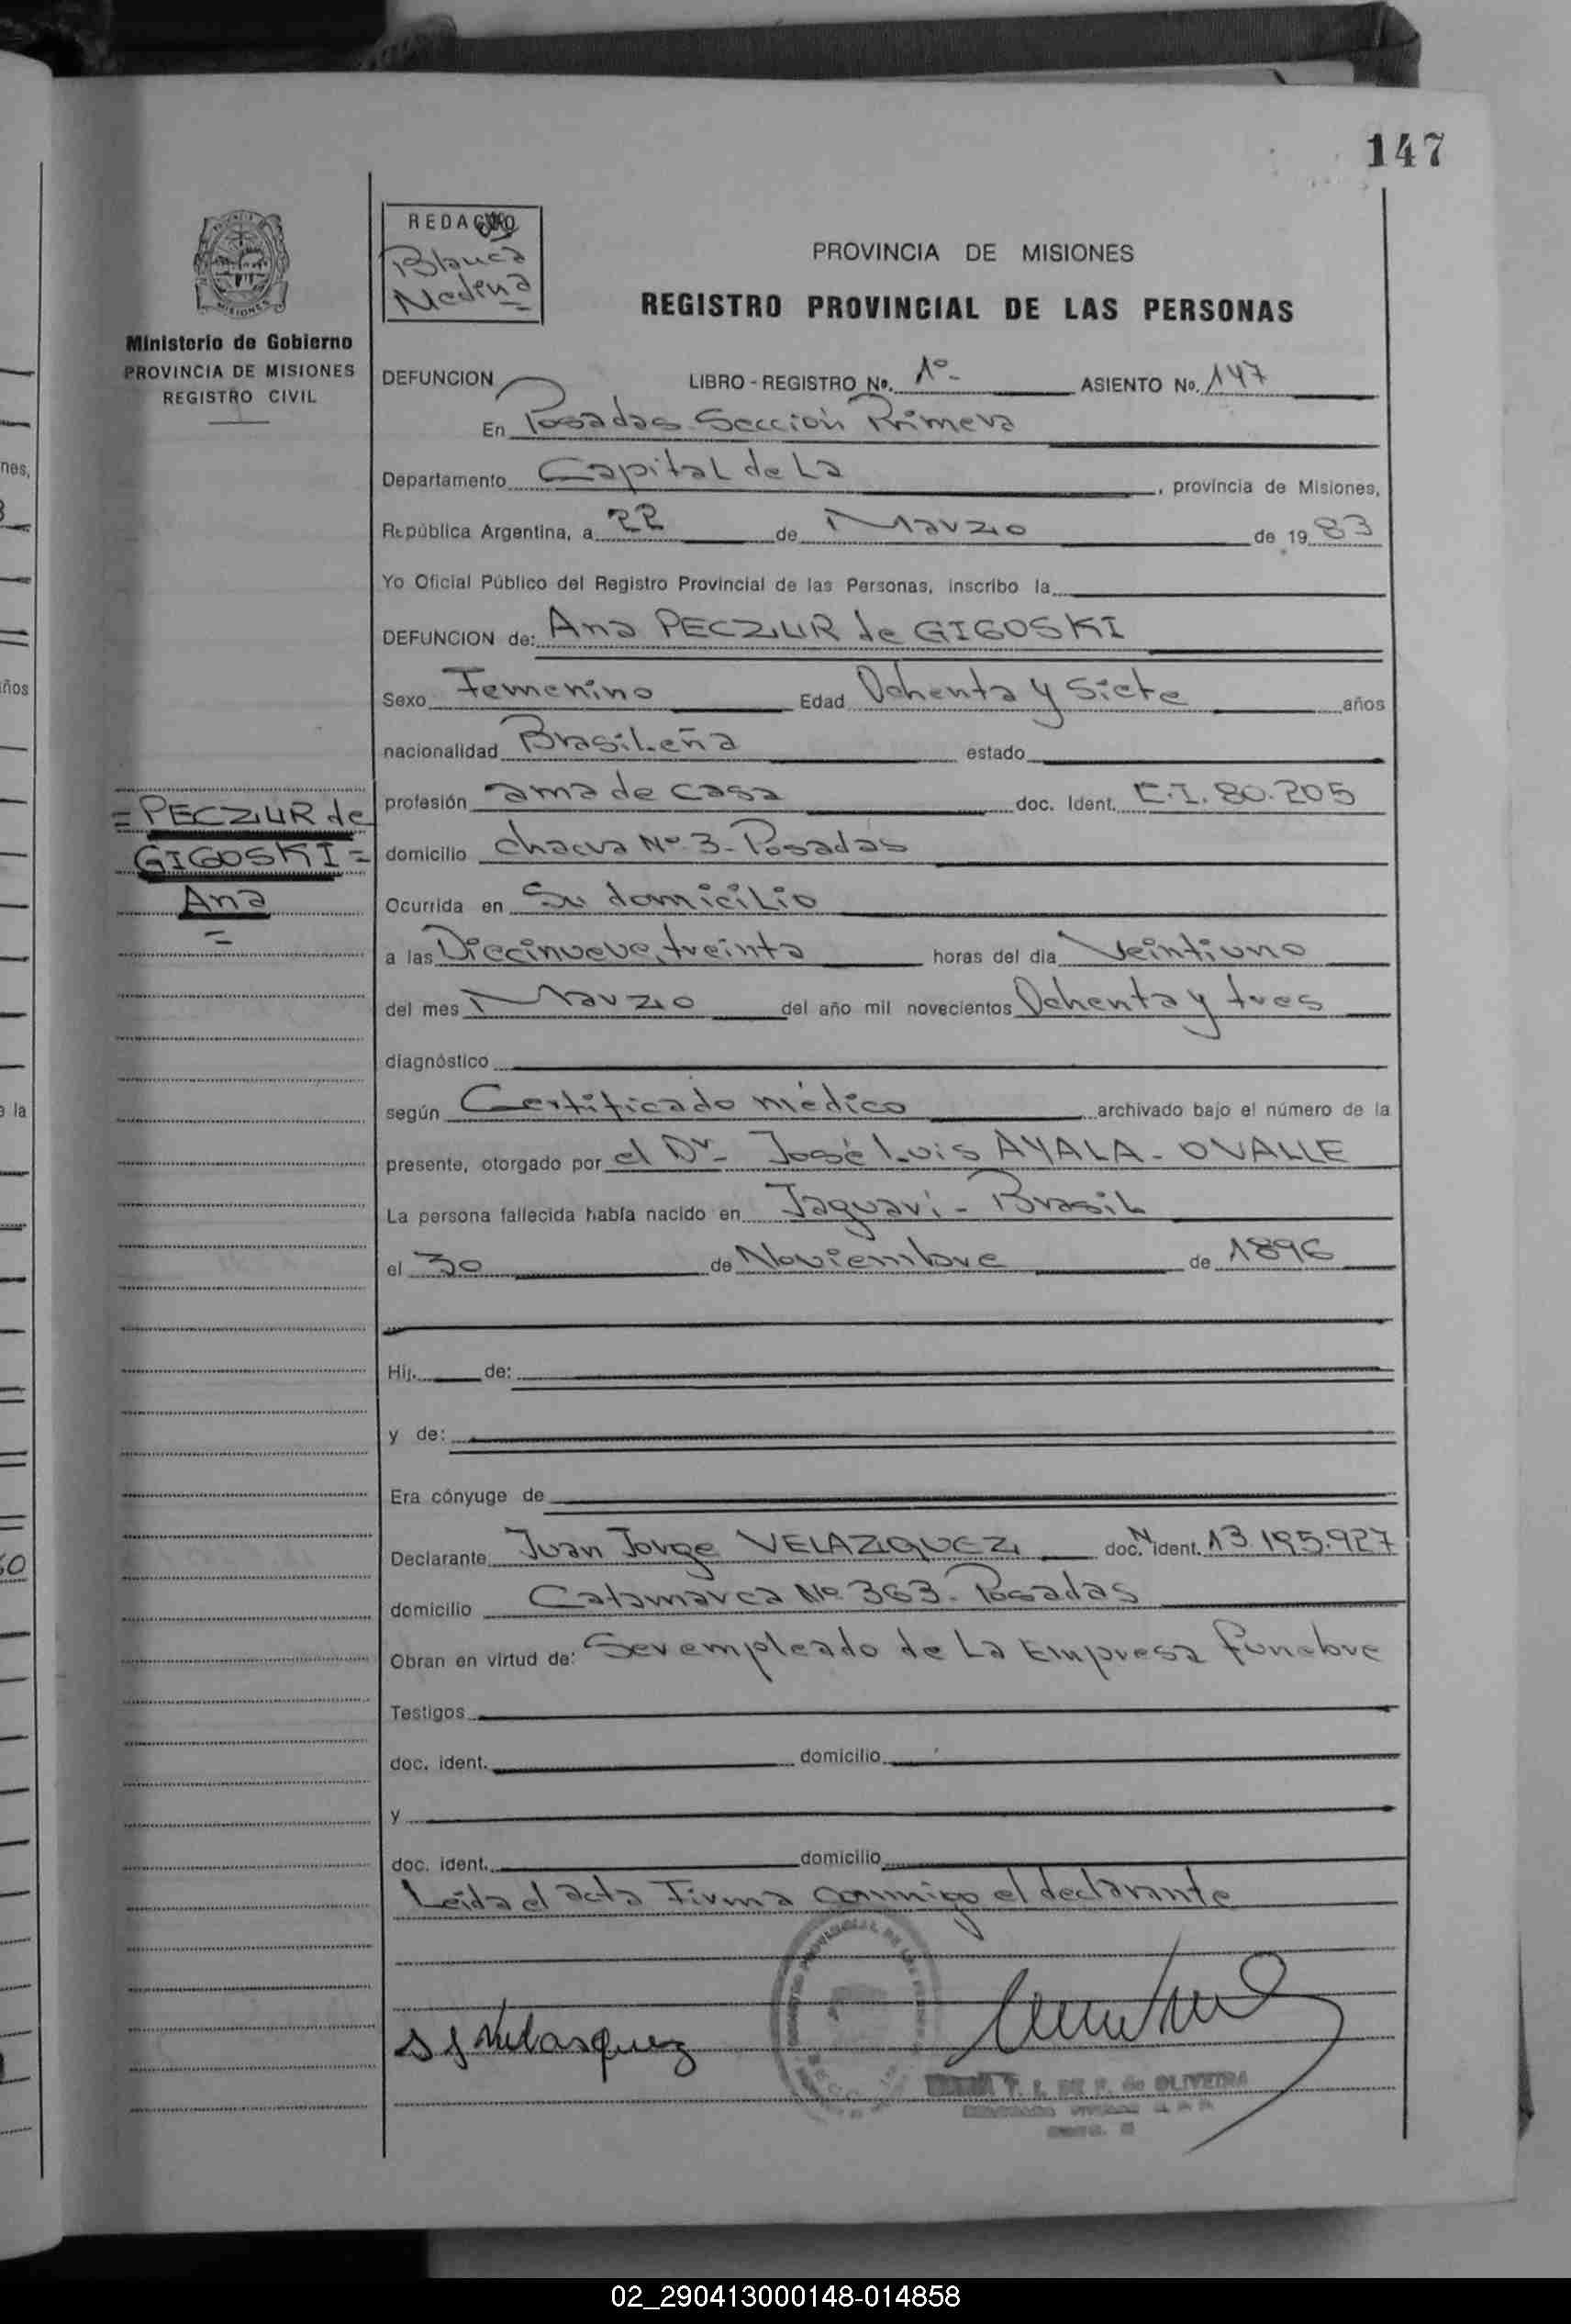 147
REDACTO
Blanca
Medina
PROVINCIA DE MISIONES
REGISTRO PROVINCIAL DE LAS PERSONAS
Ministerio de Gobierno
PROVINCIA DE MISIONES
REGISTRO CIVIL
DEFUNCION LIBRO - REGISTRO No. 1º- ASIENTO No. 147
En Posadas Sección Primera
Departamento Capital de La , provincia de Misiones,
República Argentina, a 22 de Marzo de 1983
Yo Oficial Público del Registro Provincial de las Personas, inscribo la
DEFUNCION de: Ana PECZUR de GIGOSKI
Sexo Femenino Edad Ochenta y siete años
nacionalidad Brasileña estado
profesión ama de casa doc. Ident. C.I. 80.205
domicilio chacra Nº 3- Posadas
= PECZUR de
GIGOSKI =
Ana
=
Ocurrida en Su domicilio
a las Diecinueve, treinta horas del dia Veintiuno
del mes Marzo del año mil novecientos Ochenta y tres
diagnóstico
según Certificado médico archivado bajo el número de la
presente, otorgado por el Dr- José Luis AYALA - OVALLE
La persona fallecida había nacido en Jaguari - Brasil
el 30 de Noviembre de 1896
Hij. de:
y de:
Era cónyuge de
Declarante Juan Jorge VELAZQUEZ doc. N ident. 13.195.927
domicilio Catamarca Nº 363- Posadas
Obran en virtud de: Ser empleado de La Empresa funebre
Testigos
doc. ident. domicilio
y
doc. ident. domicilio
Leída el acta Firma conmigo el declarante
de OLIVEIRA
nes,
años
a la
02_290413000148-014858